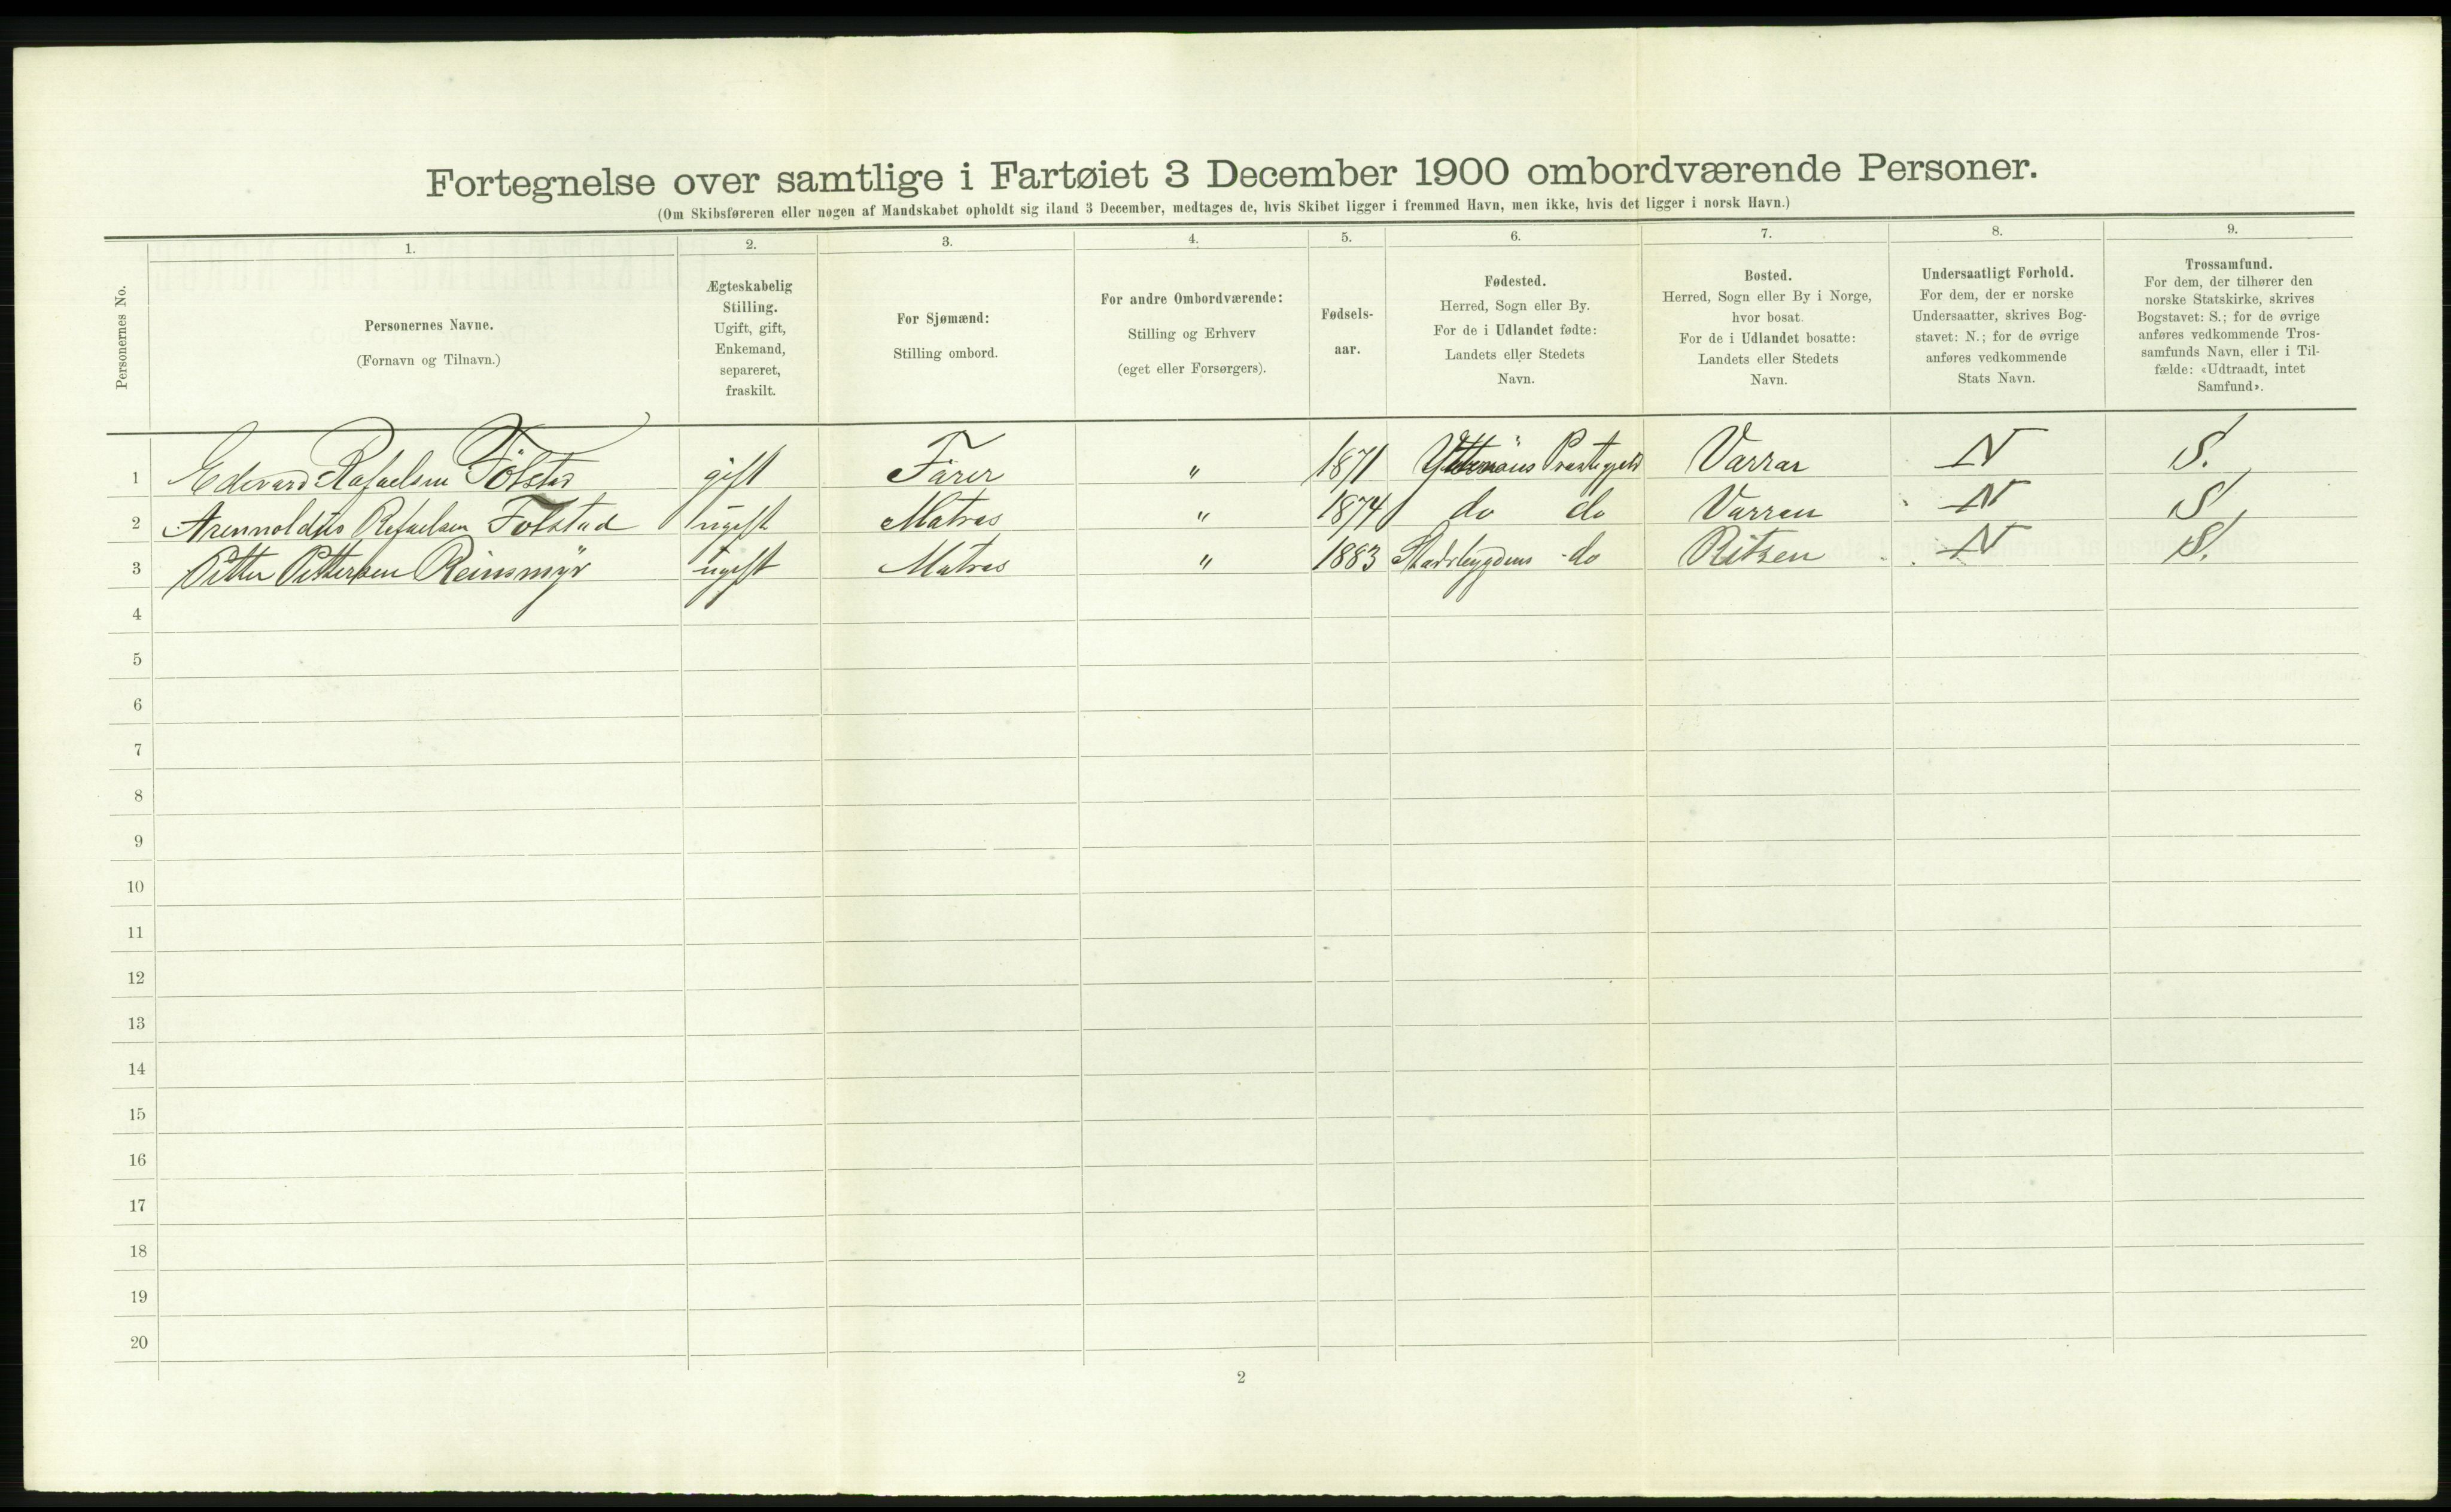 Fortegnelse over samtlige i Fartøiet 3 December 1900 ombordværende Personer.
(Om Skibsføreren eller nogen af Mandskabet opholdt sig iland 3 December, medtages de, hvis Skibet ligger i fremmed Havn, men ikke, hvis det ligger i norsk Havn.)
Personernes No.
1.
Personernes Navne.
(Fornavn og Tilnavn.)
2.
Ægteskabelig
Stilling.
Ugift, gift,
Enkemand,
separeret,
fraskilt.
3.
For Sjømænd:
Stilling ombord.
4.
For andre Ombordværende:
Stilling og Erhverv
(eget eller Forsørgers).
5.
Fødsels-
aar.
6.
Fødested.
Herred, Sogn eller By.
For de i Udlandet fødte:
Landets eller Stedets
Navn.
7.
Bosted.
Herred, Sogn eller By i Norge,
hvor bosat.
For de i Udlandet bosatte:
Landets eller Stedets
Navn.
8.
Undersaatligt Forhold.
For dem, der er norske
Undersaatter, skrives Bog-
stavet: N.; for de øvrige
anføres vedkommende
Stats Navn.
9.
Trossamfund.
For dem, der tilhører den
norske Statskirke, skrives
Bogstavet: S.; for de øvrige
anføres vedkommende Tros-
samfunds Navn, eller i Til-
fælde: «Udtraadt, intet
Samfund».
1 Edevard Rafaelsen gift Fører " 1871 Varran N S.
2 Refaelsen Folstad ugift Matros " 1874 do do Varran N S,
3 Pitter Pittersen Reinsmyr ugift Matros " 1883 Stadsbygdens do Ritsen N S.
4
5
6
7
8
9
10
11
12
13
14
15
16
17
18
19
20
2